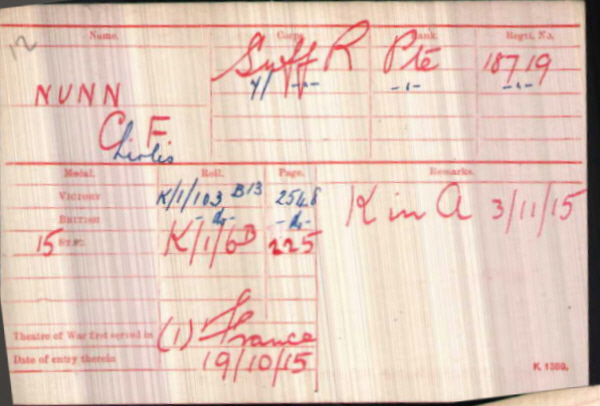 12
Name. Corps. Rank. Regtl. No.
Suff R Pte 18719
7/ -"- -"- -"-
NUNN
C. F.
Medal. Roll. Page. Remarks.
VICTORY K/1/103 B13 2548
BRITISH -do- -do-
15 STAR K/1/6B 225
K in A 3/11/15
Theatre of War first served in (1) France
Date of entry therein 19/10/15
K. 1380.